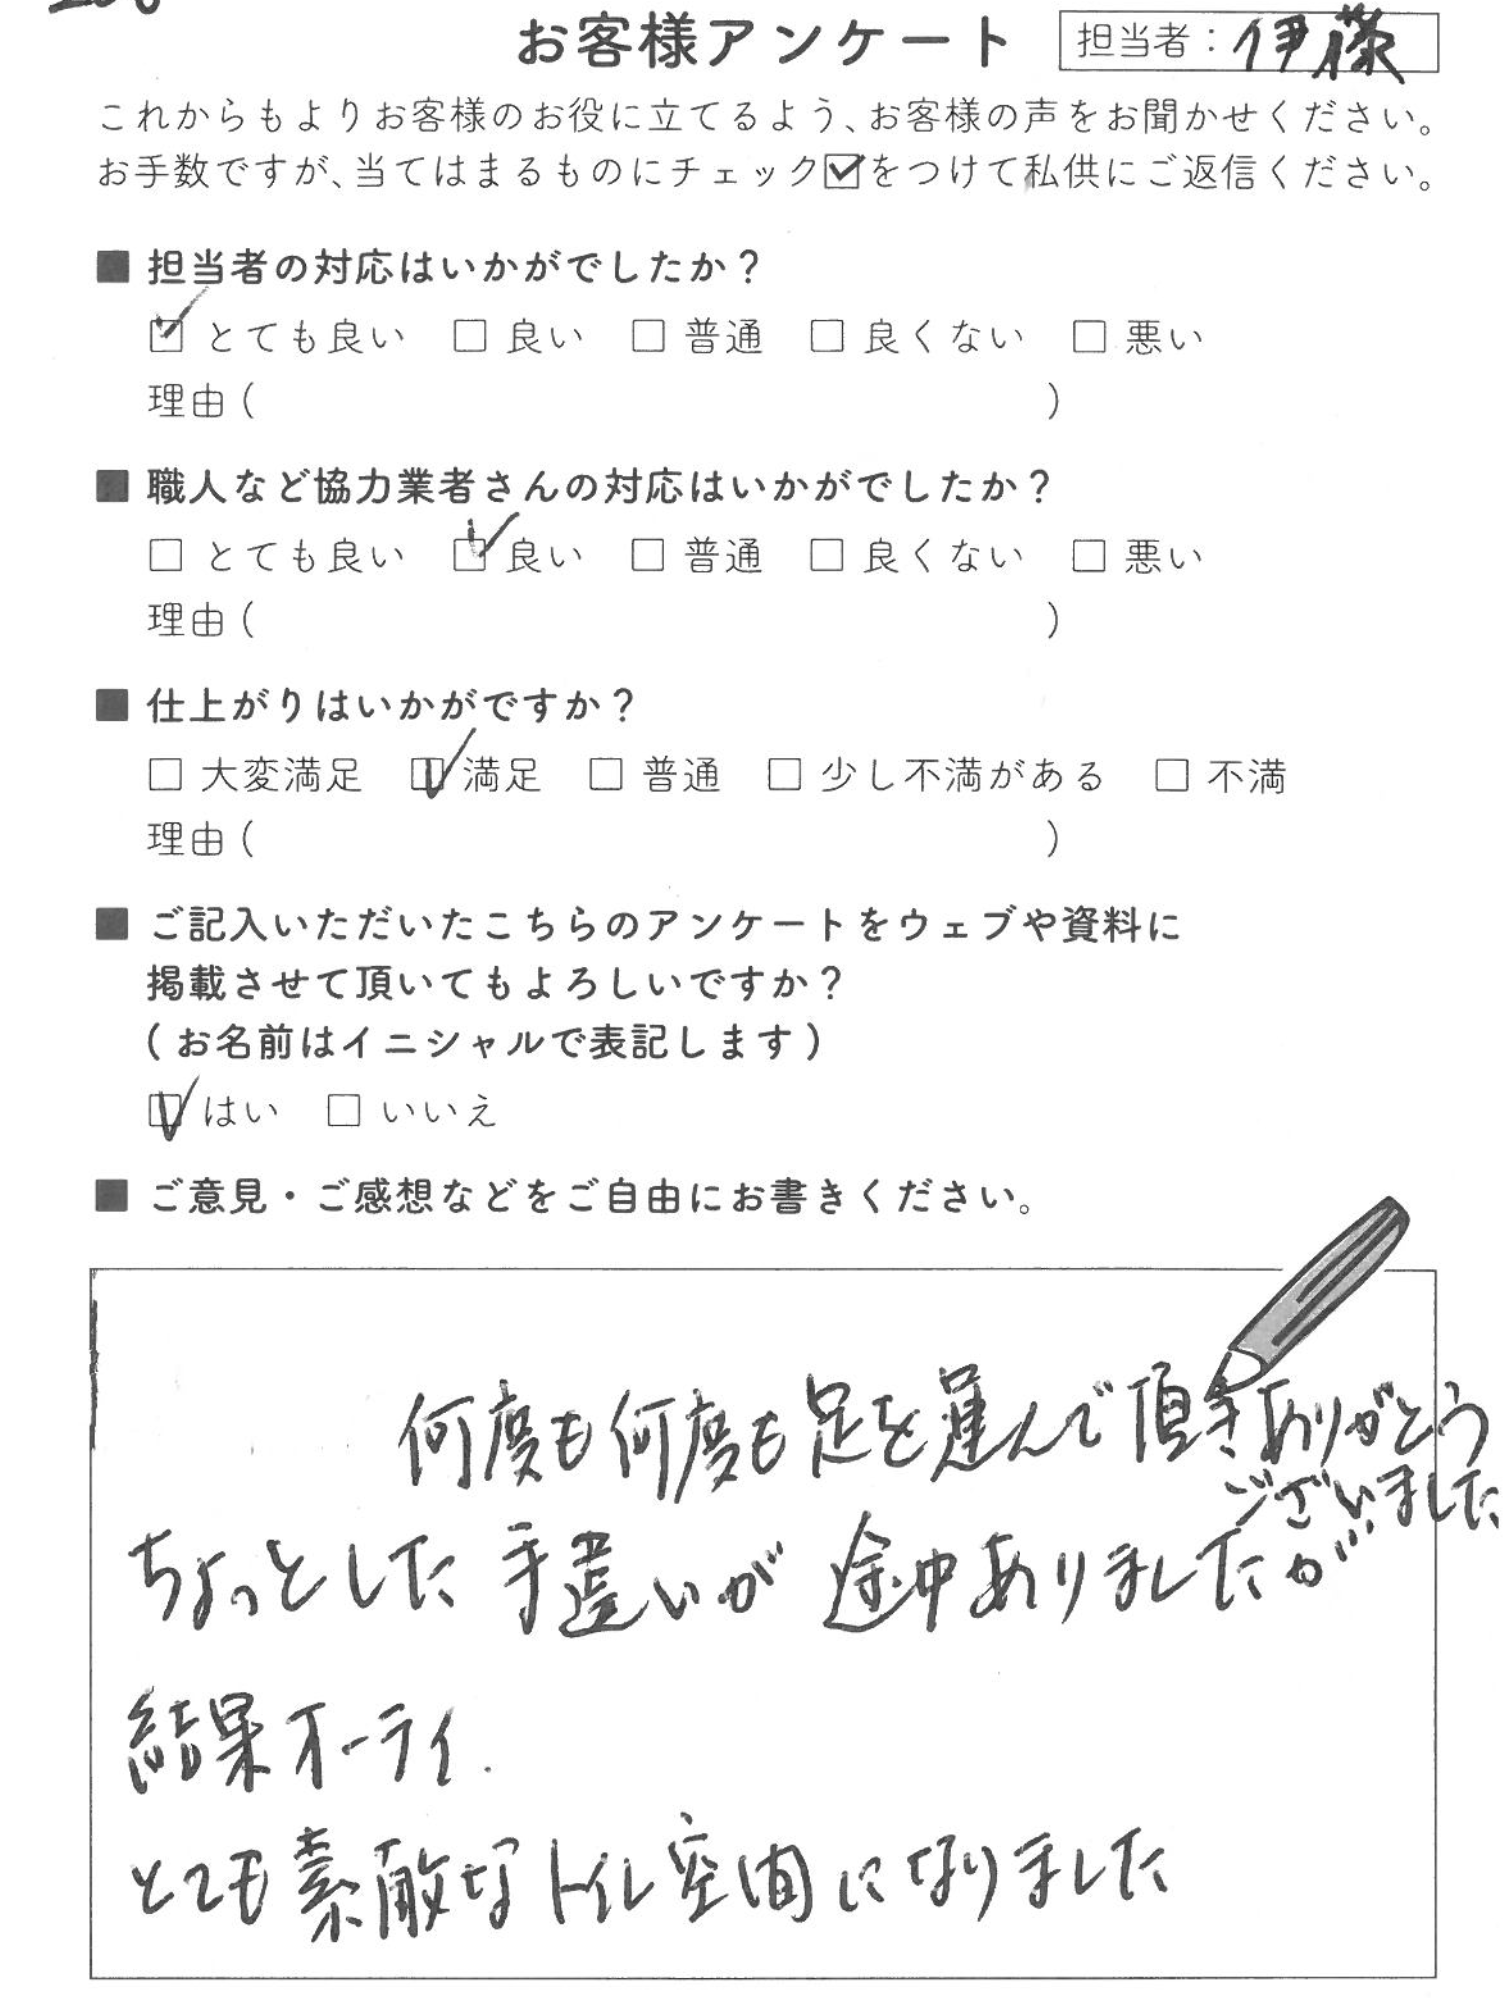 お客様アンケート 担当者：伊藤
これからもよりお客様のお役に立てるよう、お客様の声をお聞かせください。
お手数ですが、当てはまるものにチェック☑をつけて私供にご返信ください。
■ 担当者の対応はいかがでしたか？
☑ とても良い □ 良い □ 普通 □ 良くない □ 悪い
理由（ ）
■ 職人など協力業者さんの対応はいかがでしたか？
□ とても良い ☑ 良い □ 普通 □ 良くない □ 悪い
理由（ ）
■ 仕上がりはいかがですか？
□ 大変満足 ☑ 満足 □ 普通 □ 少し不満がある □ 不満
理由（ ）
■ ご記入いただいたこちらのアンケートをウェブや資料に
掲載させて頂いてもよろしいですか？
（お名前はイニシャルで表記します）
☑ はい □ いいえ
■ ご意見・ご感想などをご自由にお書きください。
何度も何度も足を運んで頂きありがとう
ございました
ちょっとした手違いが途中ありましたが
結果オーライ.
とても素敵なトイレ空間になりました